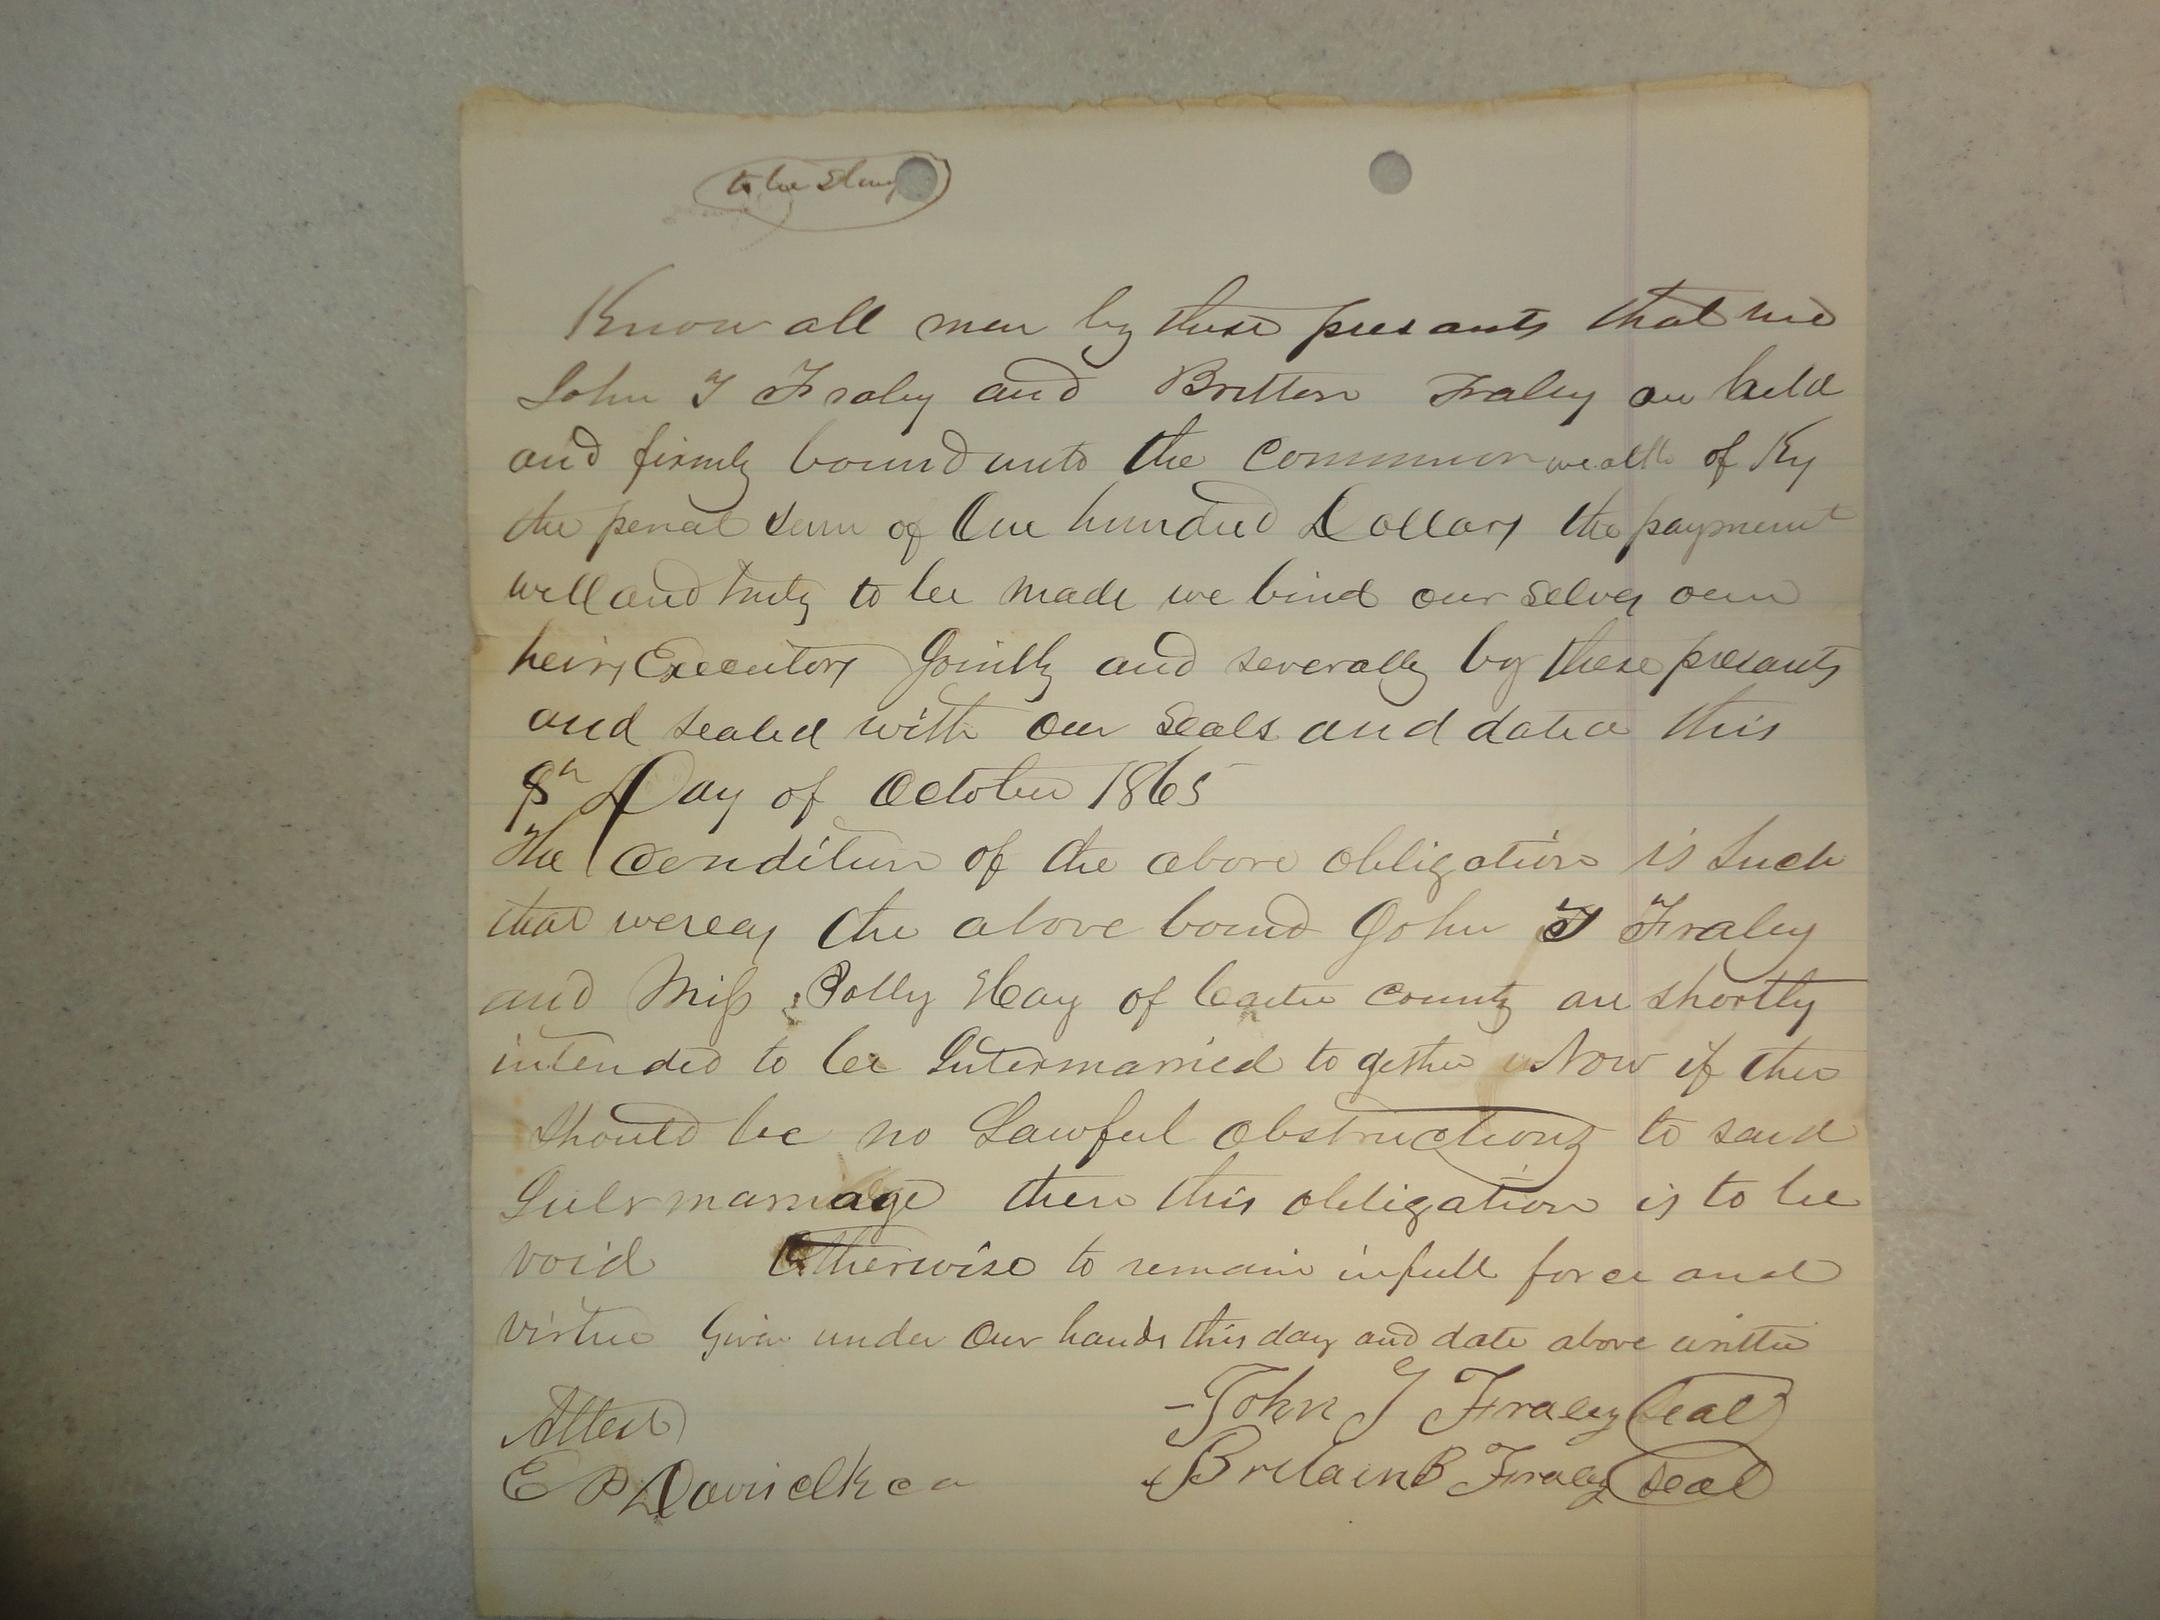 to be Stamp
Know all men by these presants that we
John T Fraley and Britton Fraley are held
and firmly bound unto the Commonwealth of Ky
the penal sum of One hundred Dollars the payment
well and truly to be made we bind our selves our
heirs, Executors Jointly and severally by these presants
and sealed with our seals and dated this
8th Day of October 1865
The condition of the above obligation is Such
that wereas the above bound John T Fraley
and Miss Polly Hay of Carter county are shortly
intended to be Intermarried together Now if ther
should be no Lawful obstructions to said
Intermarriage then this obligation is to be
void Otherwise to remain in full force and
virtue Given under our hands this day and date above written
Attest
John T Fraley Seal
E P Davis clk c c
Britain B Fraley Seal